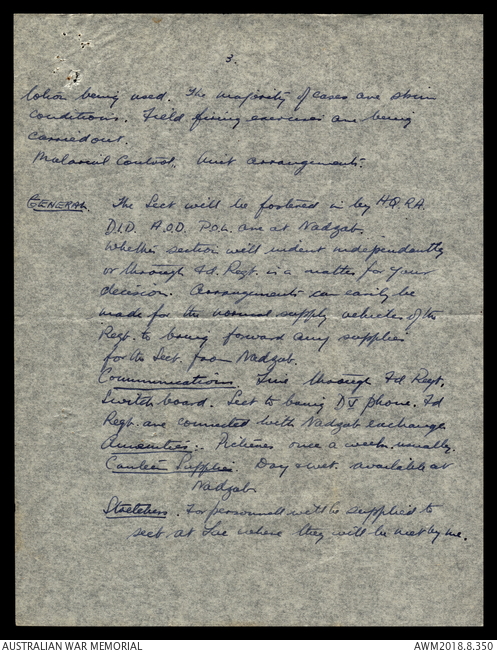 3.
lotion being used. The majority of cases are skin
conditions. Field firing exercises are being
carried out.
Malarial Control. Unit arrangements.
GENERAL. The Sect will be fostered in by H.Q. R.A.
D.I.D. A.O.D. P.O.L. are at Nadzab.
Whether section will indent independently
or through Fd. Regt. is a matter for your
decision. Arrangements can easily be
made for the normal supply vehicles of the
Regt. to bring forward any supplies
for the Sect. from Nadzab.
Communications. Line through Fd Regt.
Switch board. Sect to bring D V phone. Fd
Regt. are connected with Nadzab exchange
Amenities:- Pictures once a week usually.
Canteen Supplies. Dry & wet. available at
Nadzab
Stretchers. For personnel will be supplied to
sect. at Lae where they will be met by me.
AUSTRALIAN WAR MEMORIAL
AWM2018.8.350